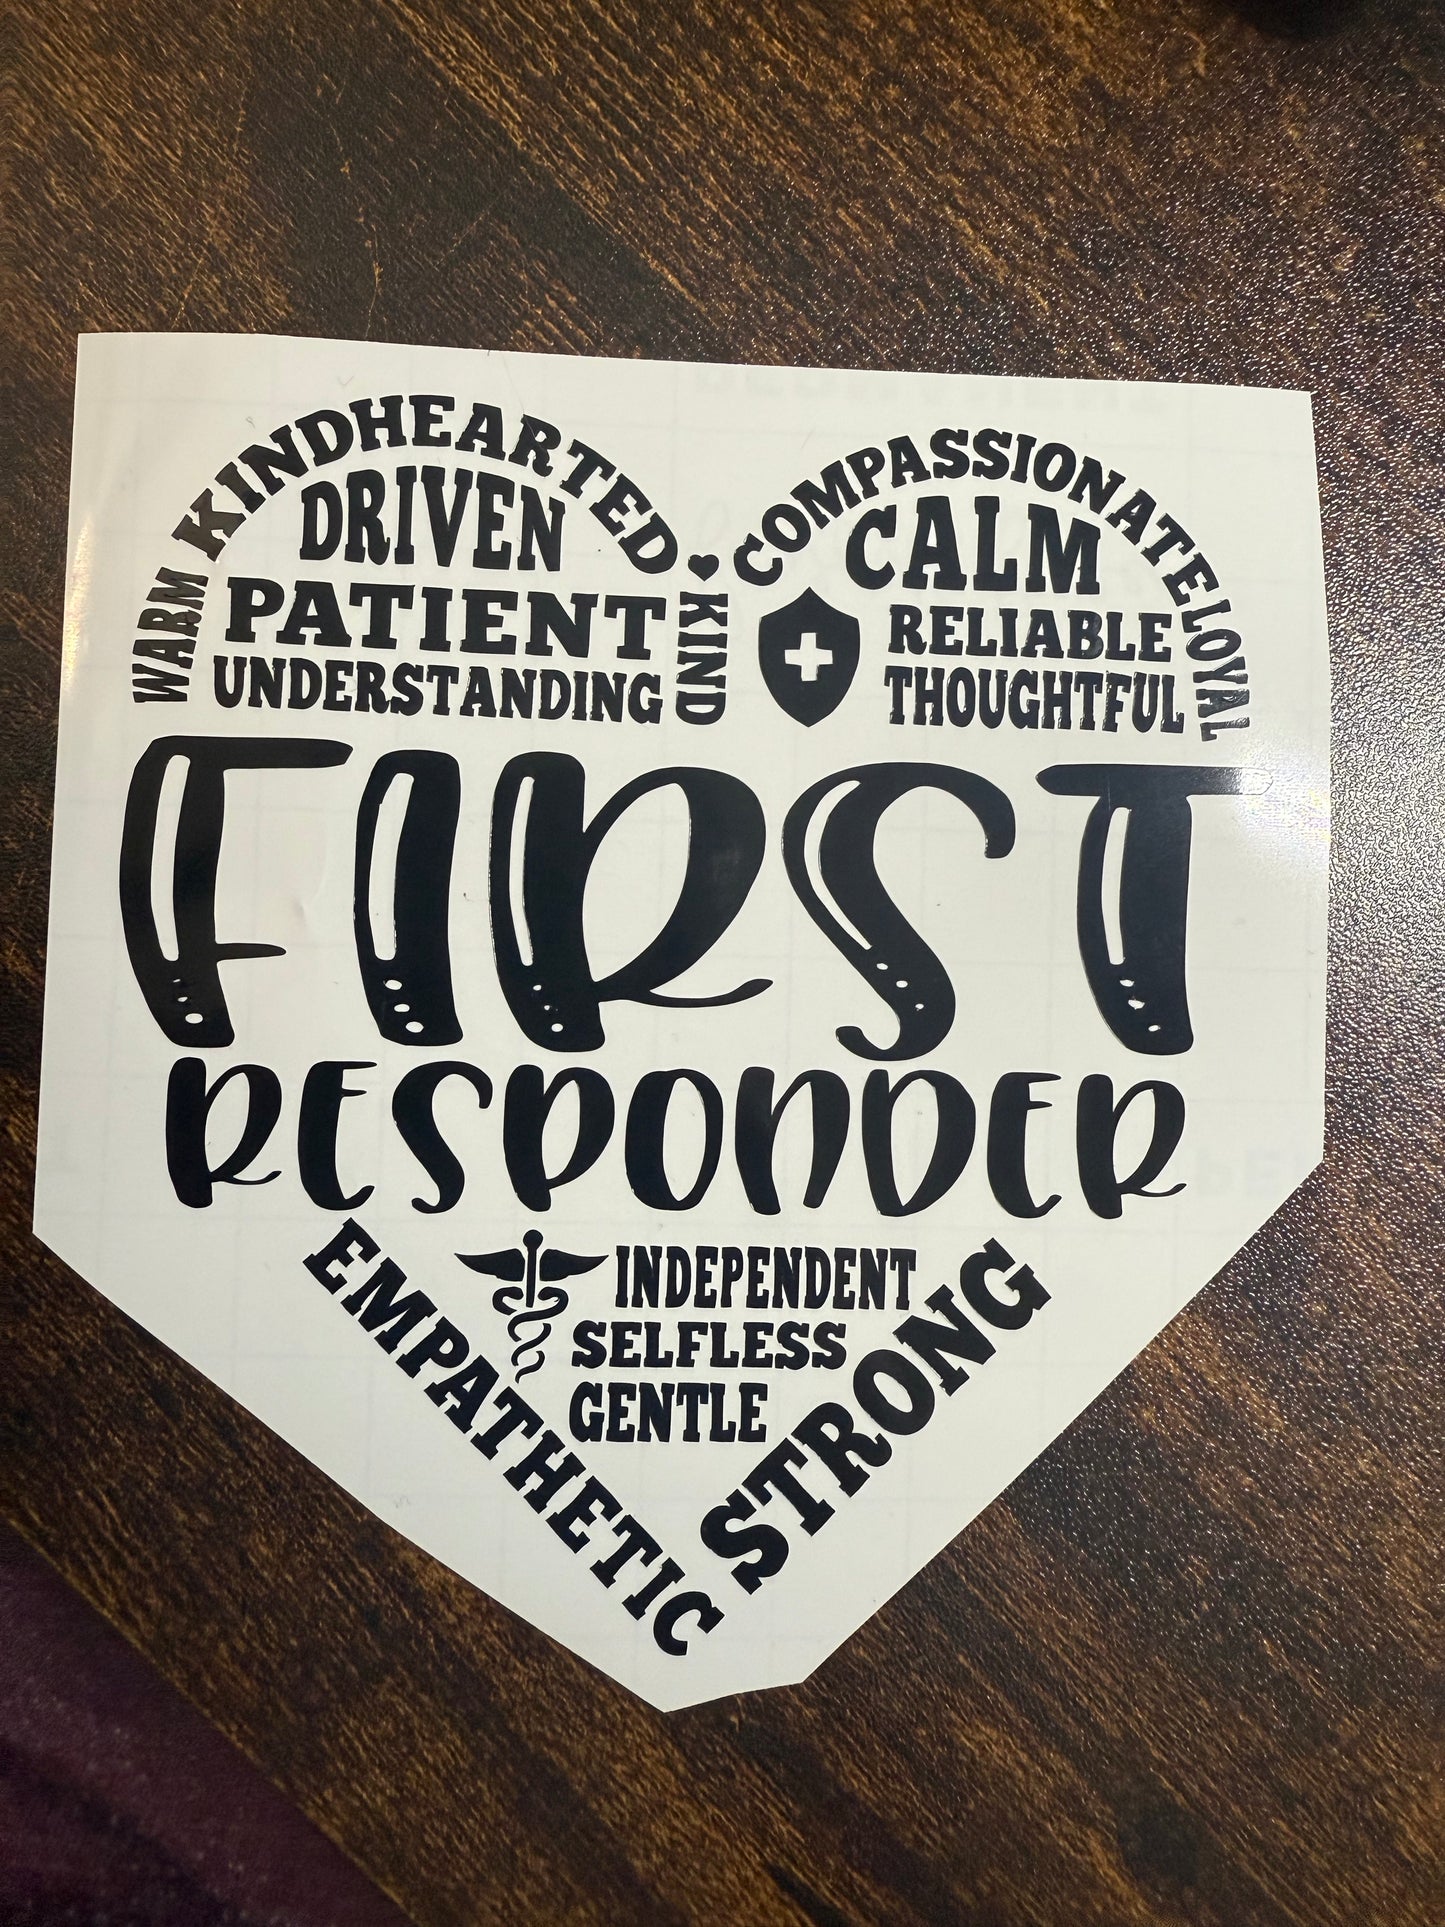 WARM
KINDHEARTED
DRIVEN
PATIENT
UNDERSTANDING
KIND
COMPASSIONATE
CALM
RELIABLE
THOUGHTFUL
LOYAL
FIRST
RESPONDER
EMPATHETIC
INDEPENDENT
SELFLESS
GENTLE
STRONG